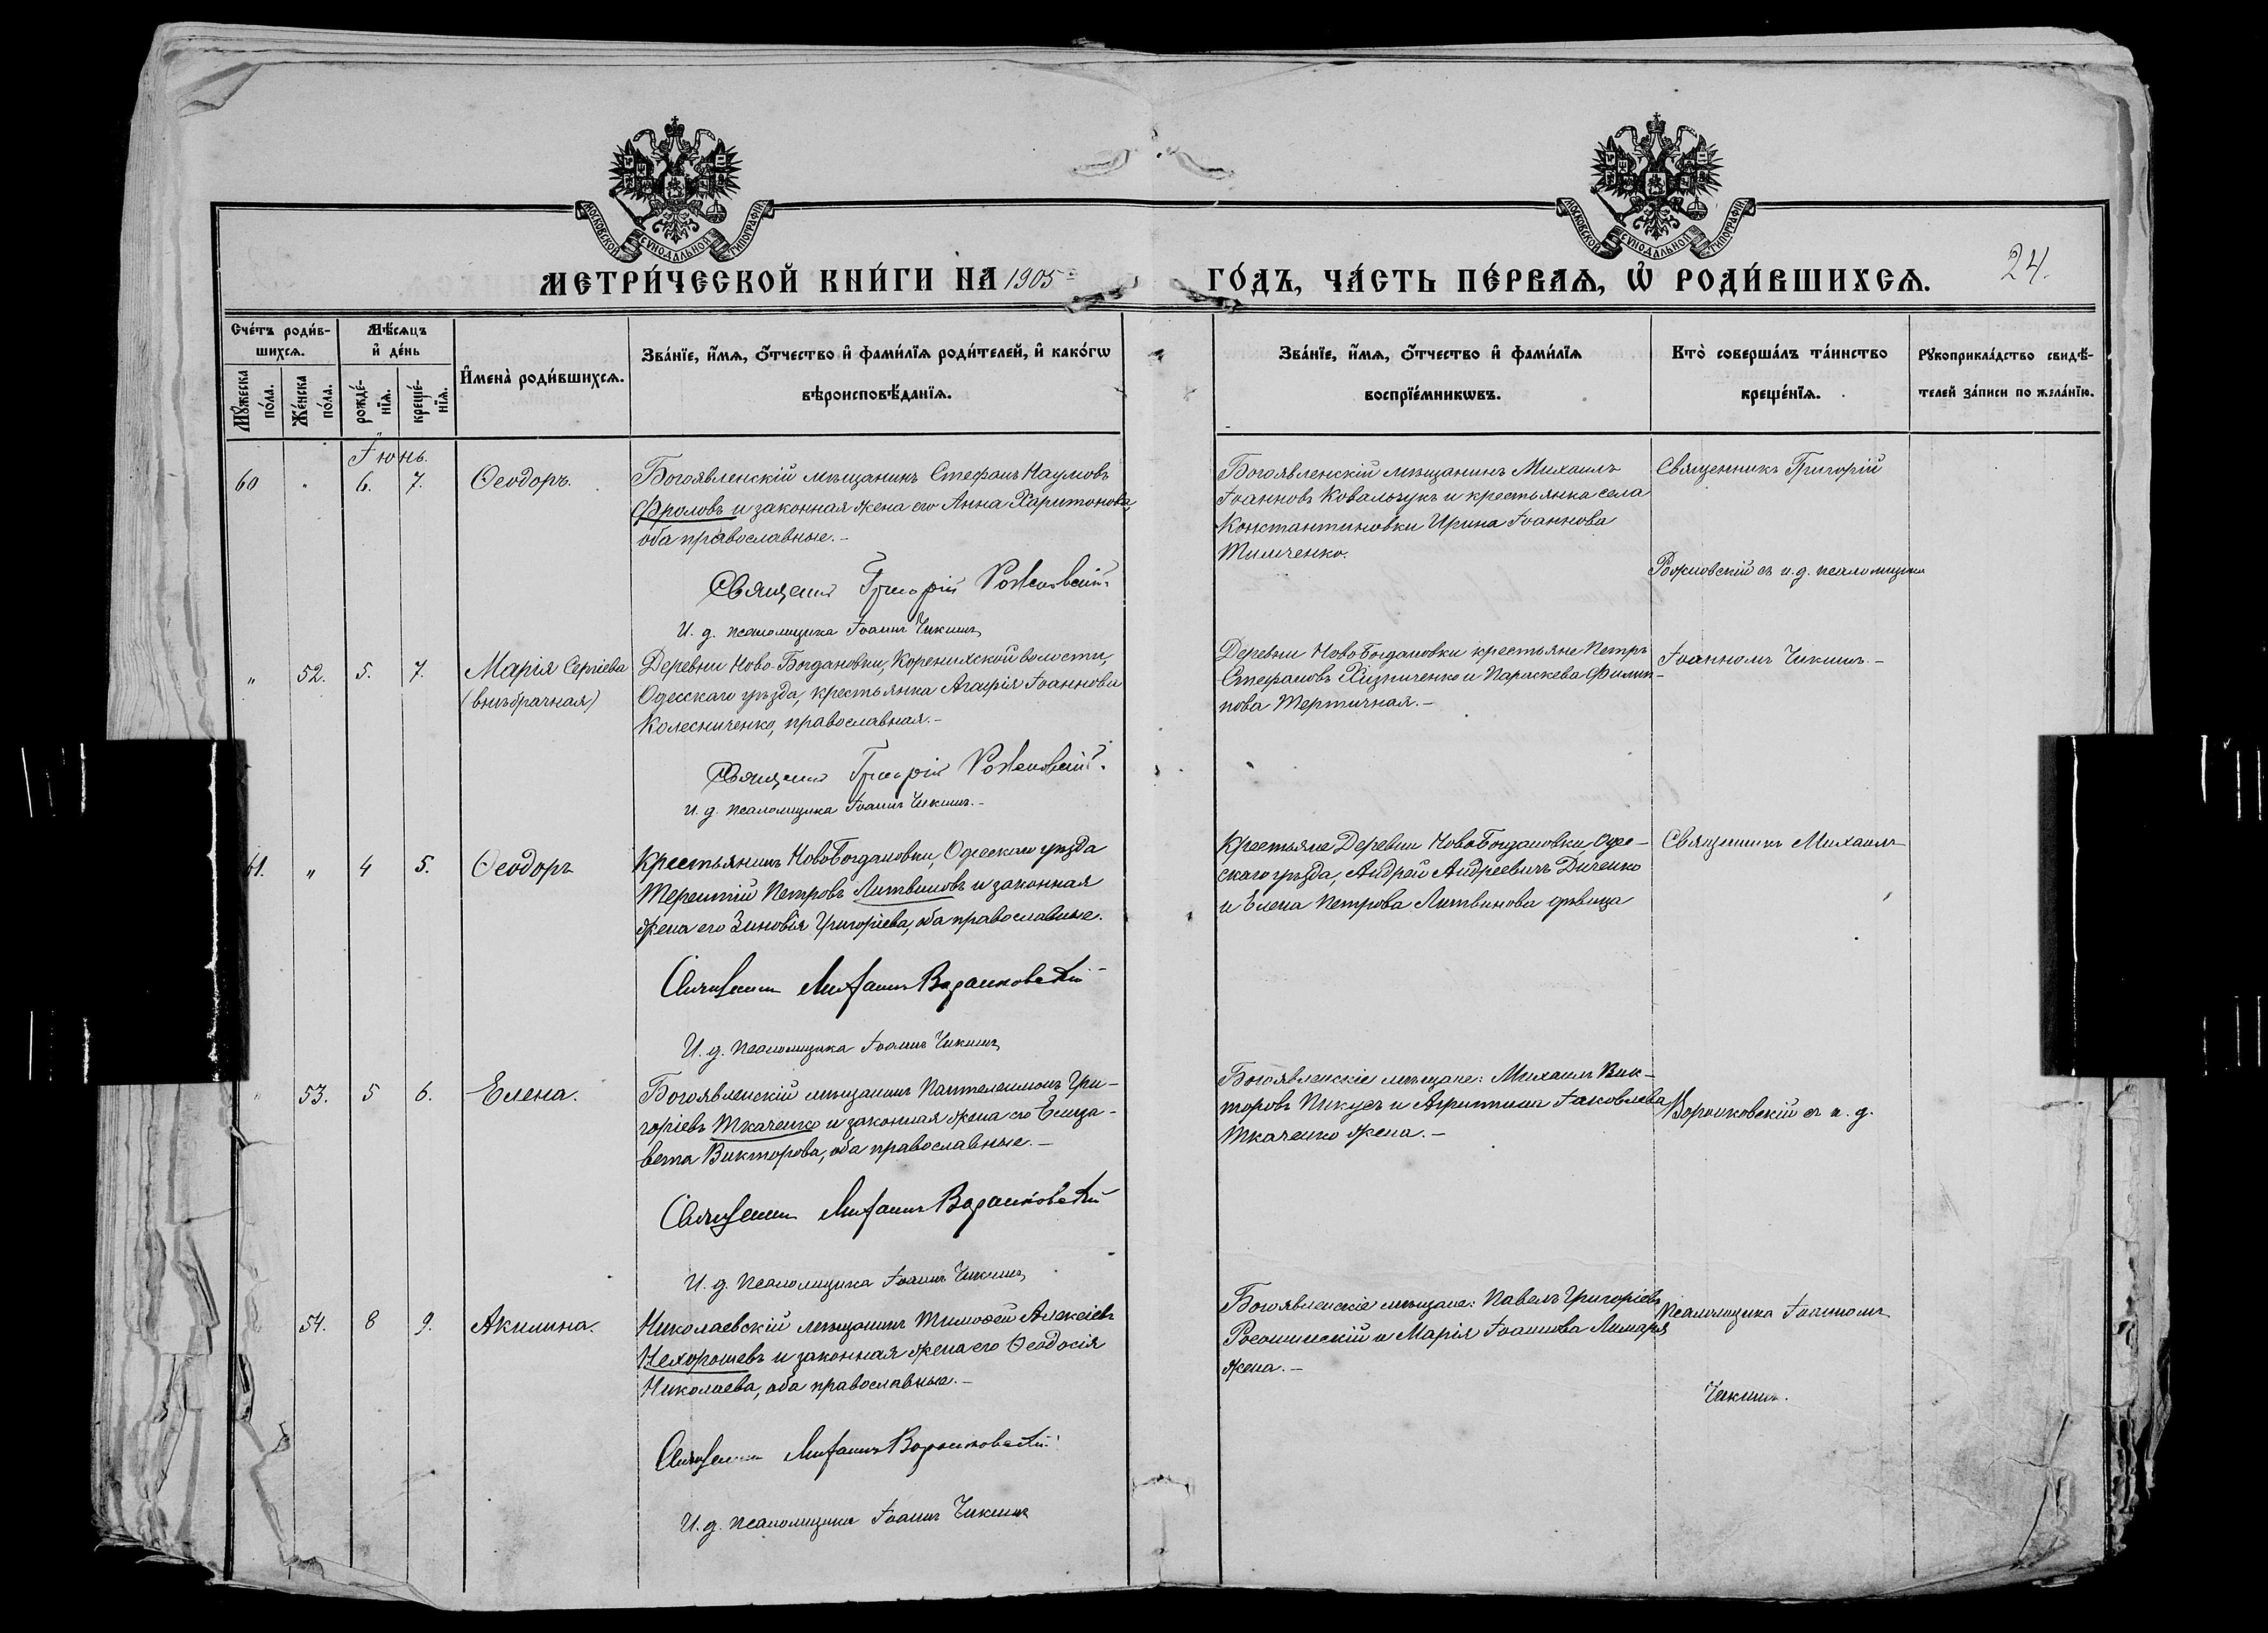 МОСКОВСКОЙ СѴНОДАЛЬНОЙ ТИПОГРАФІИ
МОСКОВСКОЙ СѴНОДАЛЬНОЙ ТИПОГРАФІИ
МЕТРИ́ЧЕСКОЙ КНИ́ГИ НА 1905 ГО́ДЪ, ЧА́СТЬ ПЕ́РВАѦ, Ѡ҆ РОДИ́ВШИХСѦ.
24.
Сче́тъ роди́в-
шихсѧ.
Мѣ́сѧцъ
и҆ де́нь
Мꙋ́жеска
по́ла.
Же́нска
по́ла.
рожде́-
нїѧ.
креще́-
нїѧ.
И҆мена̀ роди́вшихсѧ.
Зва́нїе, и҆́мѧ, ѻ҆́тчество и҆ фами́лїѧ роди́телей, и҆ како́гѡ
вѣроисповѣ́данїѧ.
Зва́нїе, и҆́мѧ, ѻ҆́тчество и҆ фами́лїѧ
воспрїе́мникѡвъ.
Кто̀ соверша́лъ та́инство
креще́нїѧ.
Рꙋкоприкла́дство свидѣ́-
телей за́писи по жела́нїю.
Іюнь.
60 " 6. 7. Ѳеодоръ.
Богоявленскій мѣщанинъ Стефанъ Наумовъ
Фроловъ и законная жена его Анна Харитонова,
оба православные.-
Священ. Григорій
И. д. псаломщика Іоаннъ Чикинъ
Богоявленскій мѣщанинъ Михаилъ
Іоанновъ Ковальчукъ и крестьянка села
Константиновки Ирина Іоаннова
Тимченко.
Священникъ Григорій
Рожновскій съ и. д. псаломщика
" 52. 5. 7. Марія Сергіева
(внѣбрачная)
Деревни Ново-Богдановки, Корениxской волости,
Одесскаго уѣзда, крестьянка Агафія Іоаннова
Колесниченко, православная.-
Священ. Григорій
И. д. псаломщика Іоаннъ Чикинъ.-
Деревни НовоБогдановки крестьяне Петръ
Стефановъ Хизниченко и Параскева Филип-
пова Тертичная.-
Іоанномъ Чикинъ.-
61. " 4 5. Ѳеодоръ
Крестьянинъ НовоБогдановки, Одесскаго уѣзда
Терентій Петровъ Литвиновъ и законная
жена его Зиновія Григоріева, оба православные.
Священникъ Михаилъ
И. д. псаломщика Іоаннъ Чикинъ
Крестьяне Деревни НовоБогдановки, Одес-
скаго уѣзда, Андрей Андреевичъ Диченко
и Елена Петрова Литвинова дѣвица
Священникъ Михаилъ
" 53. 5 6. Елена.
Богоявленскій мѣщанинъ Пантелеимонъ Гри-
горіевъ Ткаченко и законная жена его Елиза-
вета Викторова, оба православные.-
Священникъ Михаилъ
И. д. псаломщика Іоаннъ Чикинъ
Богоявленскіе мѣщане: Михаилъ Вик-
торовъ Пикусъ и Іаковлева
Ткаченко жена.-
Воронковскій съ и. д.
54. 8 9. Акилина.
Николаевскій мѣщанинъ Тимоѳей Алексіевъ
Нехорошевъ и законная жена его Ѳеодосія
Николаева, оба православные.-
Священникъ Михаилъ
И. д. псаломщика Іоаннъ Чикинъ
Богоявленскіе мѣщане: Павелъ Григоріевъ
и Марія Іоаннова Лимаря
жена.-
Псаломщика Іоанномъ
Чикинъ.